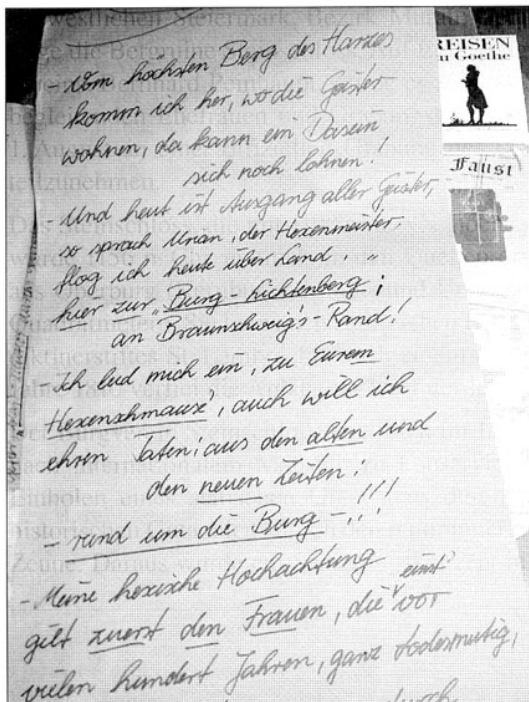 - Vom höchsten Berg des Harzes
komm ich her, wo die Geister
wohnen, da kann ein Dasein
sich noch lohnen!
- Und heut ist Ausgang aller Geister,
so sprach Urian, der Hexenmeister,
flog ich heute über Land,
hier zur „Burg-Lichtenberg";
an Braunschweig's-Rand!
- Ich lud mich ein, zu Eurem
Hexenschmause', auch will ich
ehren Taten; aus den alten und
den neuen Zeiten;
- rund um die Burg -!!!
- Meine hexische Hochachtung
gilt zuerst den Frauen, die einst vor
vielen hundert Jahren, ganz todesmutig,
REISEN
Goethe
Faust